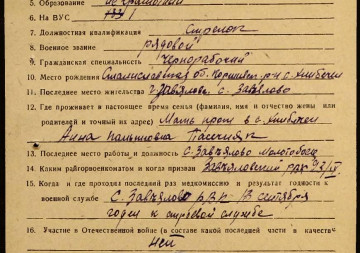 5. Образование неграмотный
6. На ВУС 134
7. Должностная квалификация Стрелок
8. Военное звание рядовой
9. Гражданская специальность Чернорабочий
10. Место рождения Станиславская об. р-н с.
11. Последнее место жительства с. Завьялово
12. Где проживает в настоящее время семья (фамилия, имя и отчество жены или
родителей и точный их адрес) Мать прож в с.
Анна
13. Последнее место работы и должность с. Завьялово
14. Каким райгорвоенкоматом и когда призван Завьяловский рвк
15. Когда и где проходил последний раз медкомиссию и результат годности к
военной службе с. Завьялово р.В.К. 13 сентября
годен к строевой службе
16. Участие в Отечественной войне (в составе какой последней части в качестве
нет